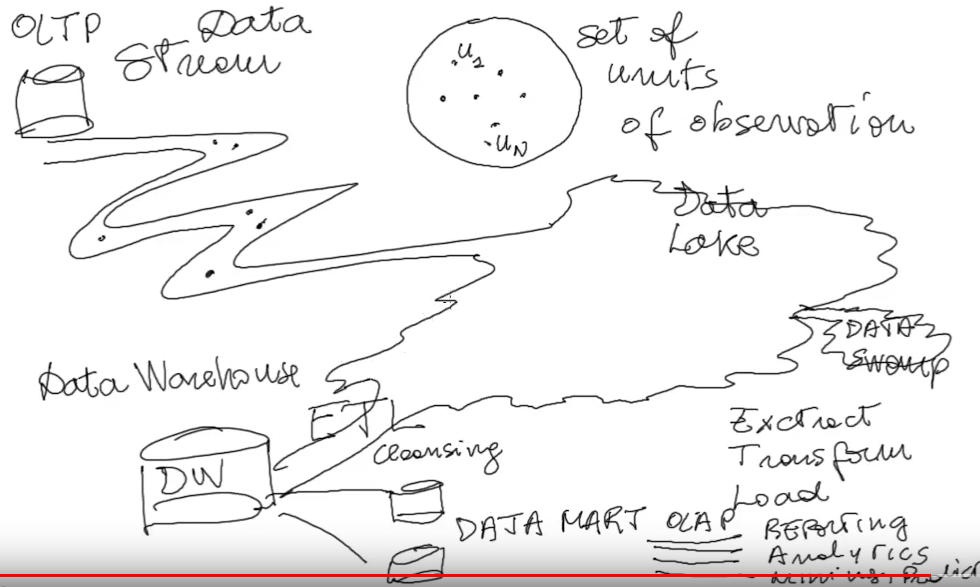 OLTP
Data
Stream
u1
uN
set of
units
of observation
Data
Lake
DATA
Swamp
Data Warehouse
ETL
Cleansing
DW
Exctract
Transform
Load
DATA MART OLAP
REPORTING
Analytics